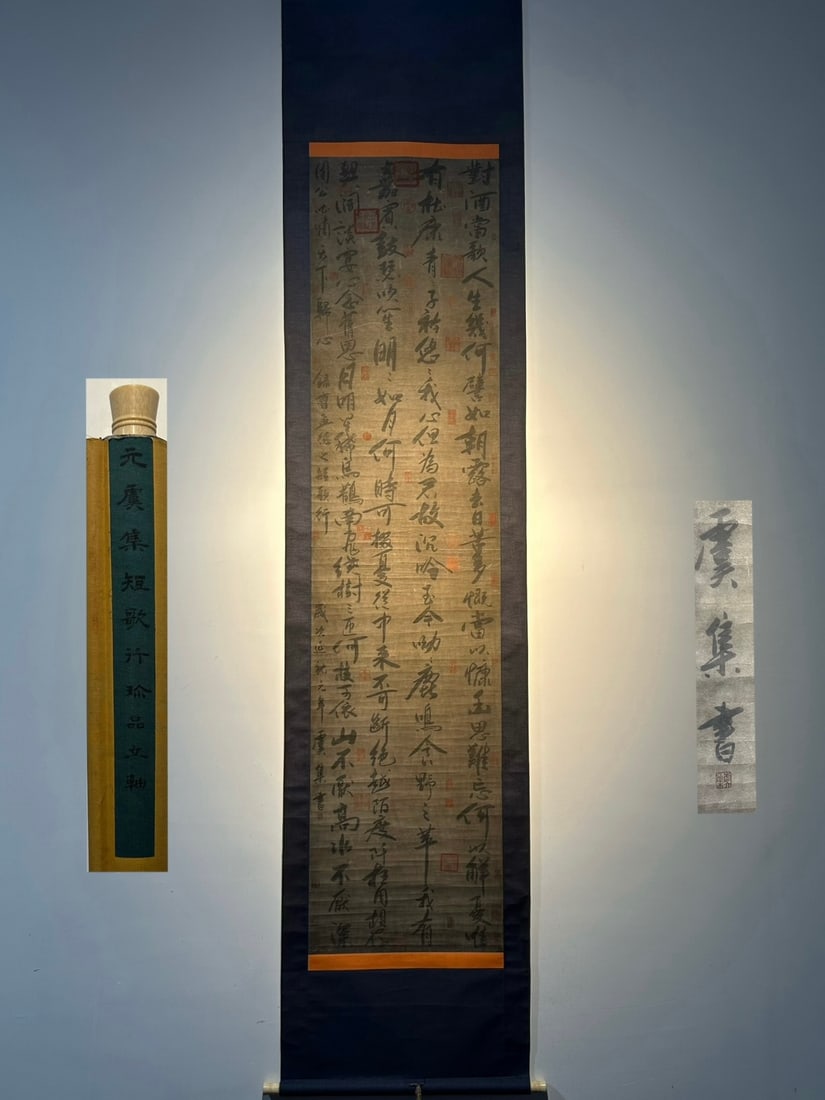 元虞集短歌行珍品立軸
對酒當歌人生幾何譬如朝露去日苦多慨當以慷幽思難忘何以解憂唯
有杜康青子衿悠々我心但為君故沉吟至今呦鹿鳴食野之苹我有
嘉賓鼓瑟吹笙明々如月何時可掇憂從中來不可斷絕越陌度阡枉用相存
契闊談宴心念舊恩月明星稀烏鵲南飛繞樹三匝何枝可依山不厭高水不厭深
周公吐哺天下歸心 錄曹孟德之短歌行 歲次延祐元年 虞集書
虞集書